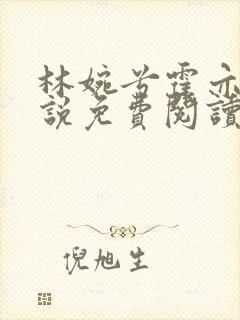 林婉兮霍亦
說免費閱讀
倪旭生